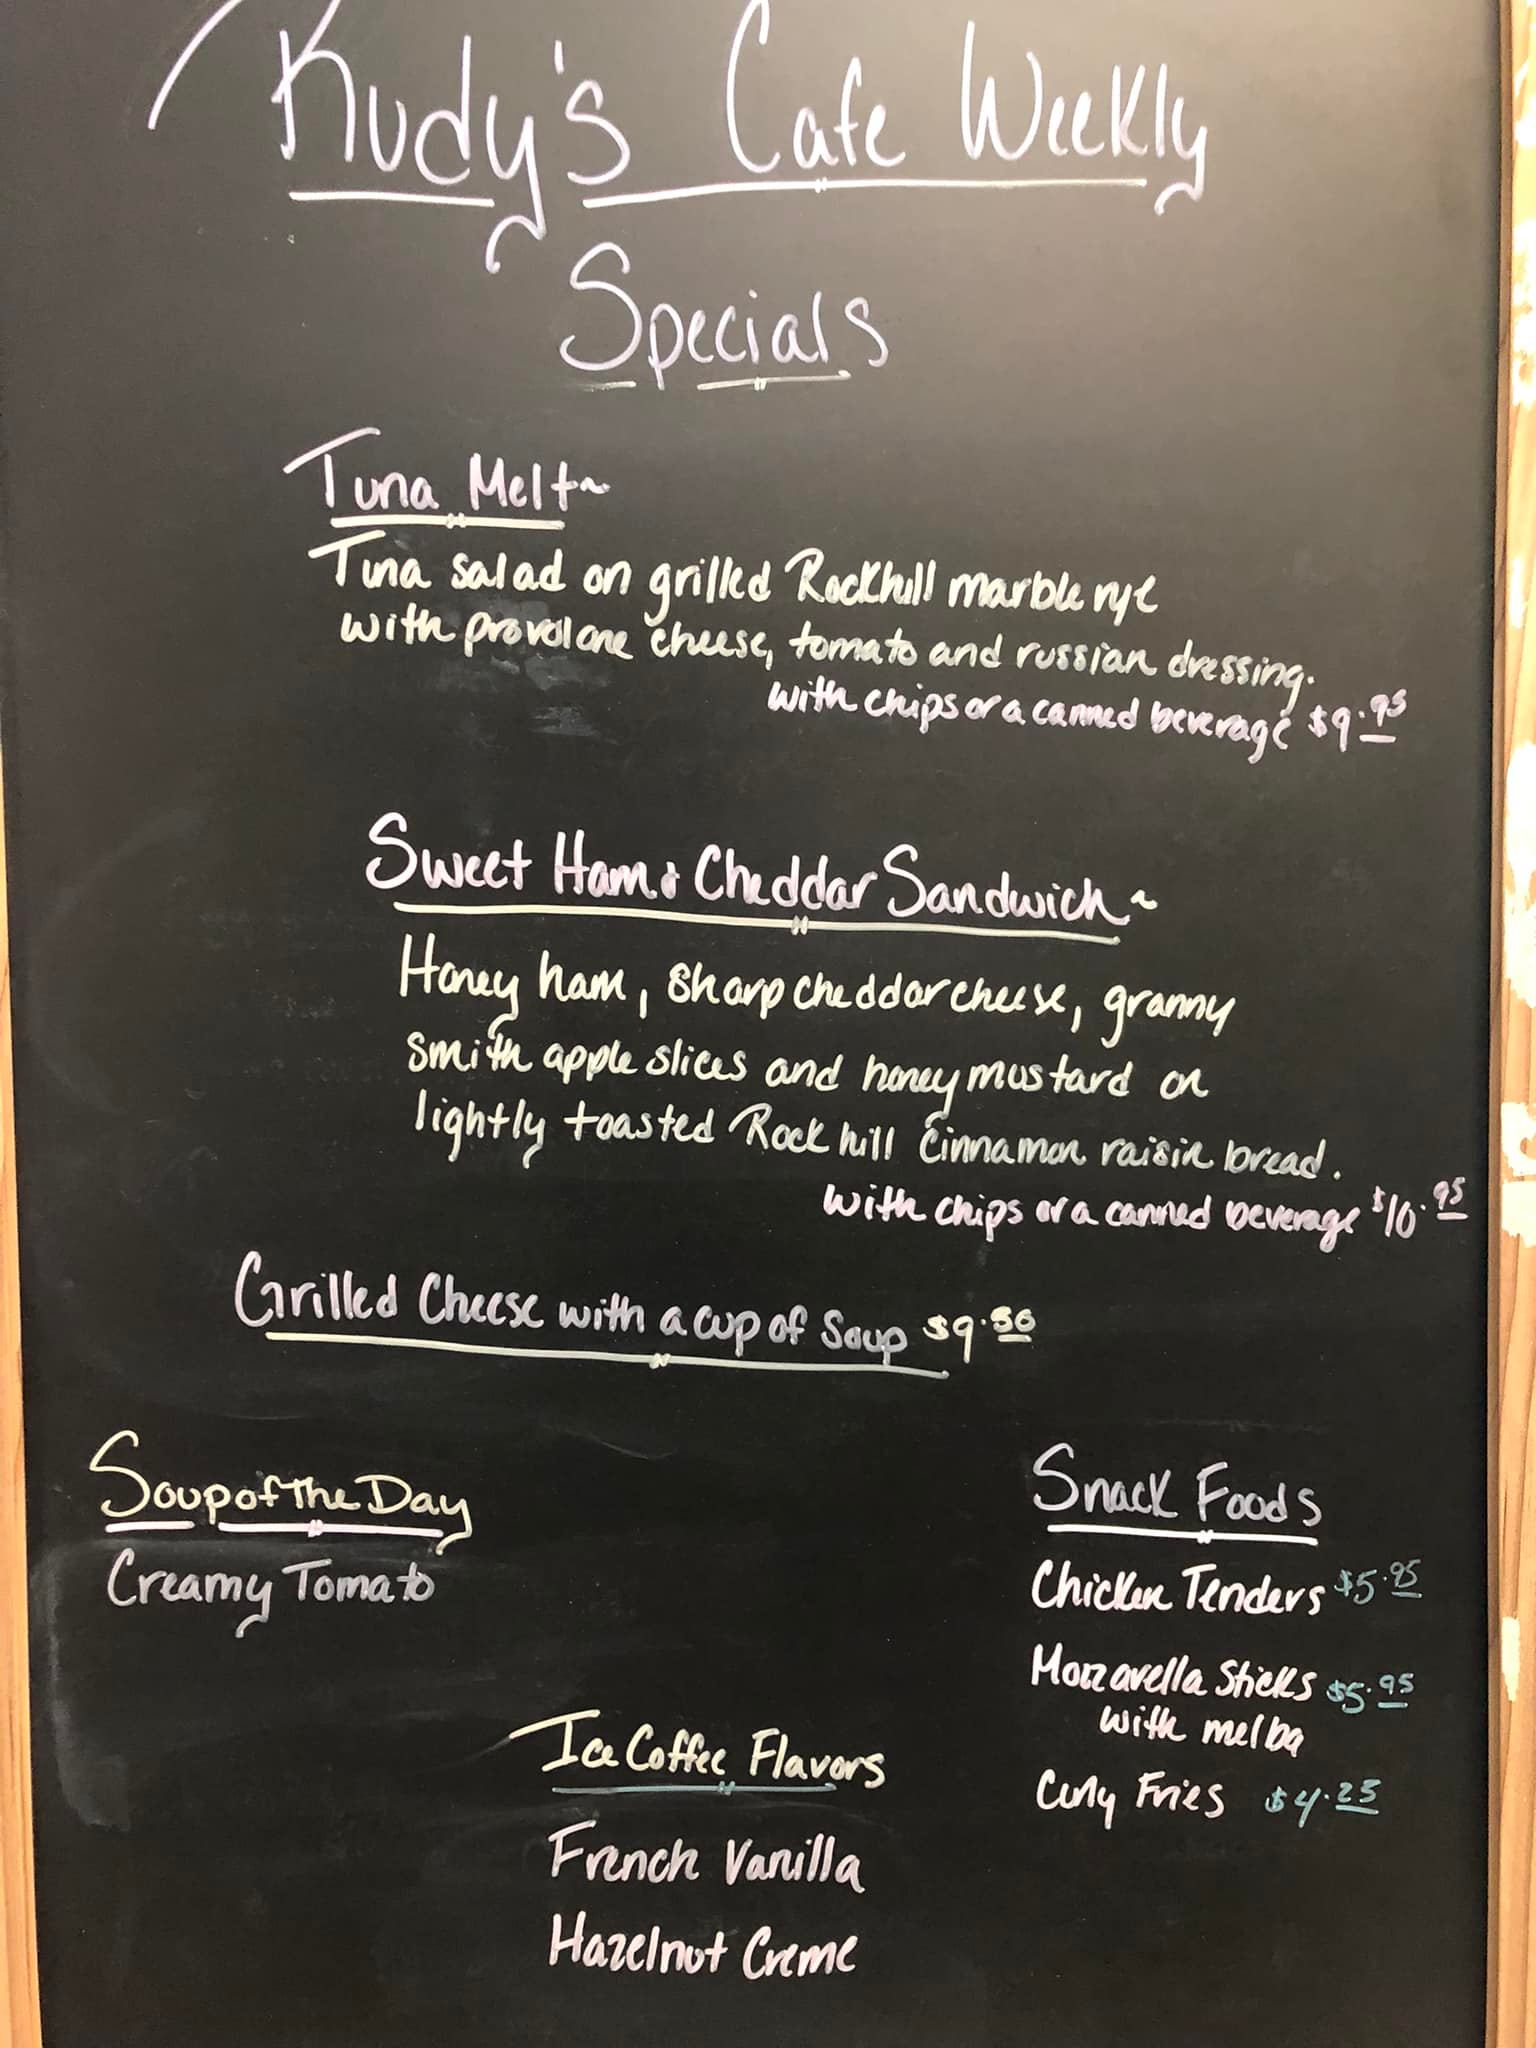 Rudy's Cafe Weekly
Specials
Tuna Melt~
Tuna salad on grilled Rockhill marble rye
with provolone cheese, tomato and russian dressing.
with chips or a canned beverage $9.95
Sweet Ham & Cheddar Sandwich~
Honey ham, sharp cheddar cheese, granny
smith apple slices and honey mustard on
lightly toasted Rock hill cinnamon raisin bread.
with chips or a canned beverage $10.95
Grilled Cheese with a cup of Soup $9.50
Soup of the Day
Creamy Tomato
Snack Foods
Chicken Tenders $5.95
Mozzarella Sticks $5.95
with melba
Curly Fries $4.25
Ice Coffee Flavors
French Vanilla
Hazelnut Creme